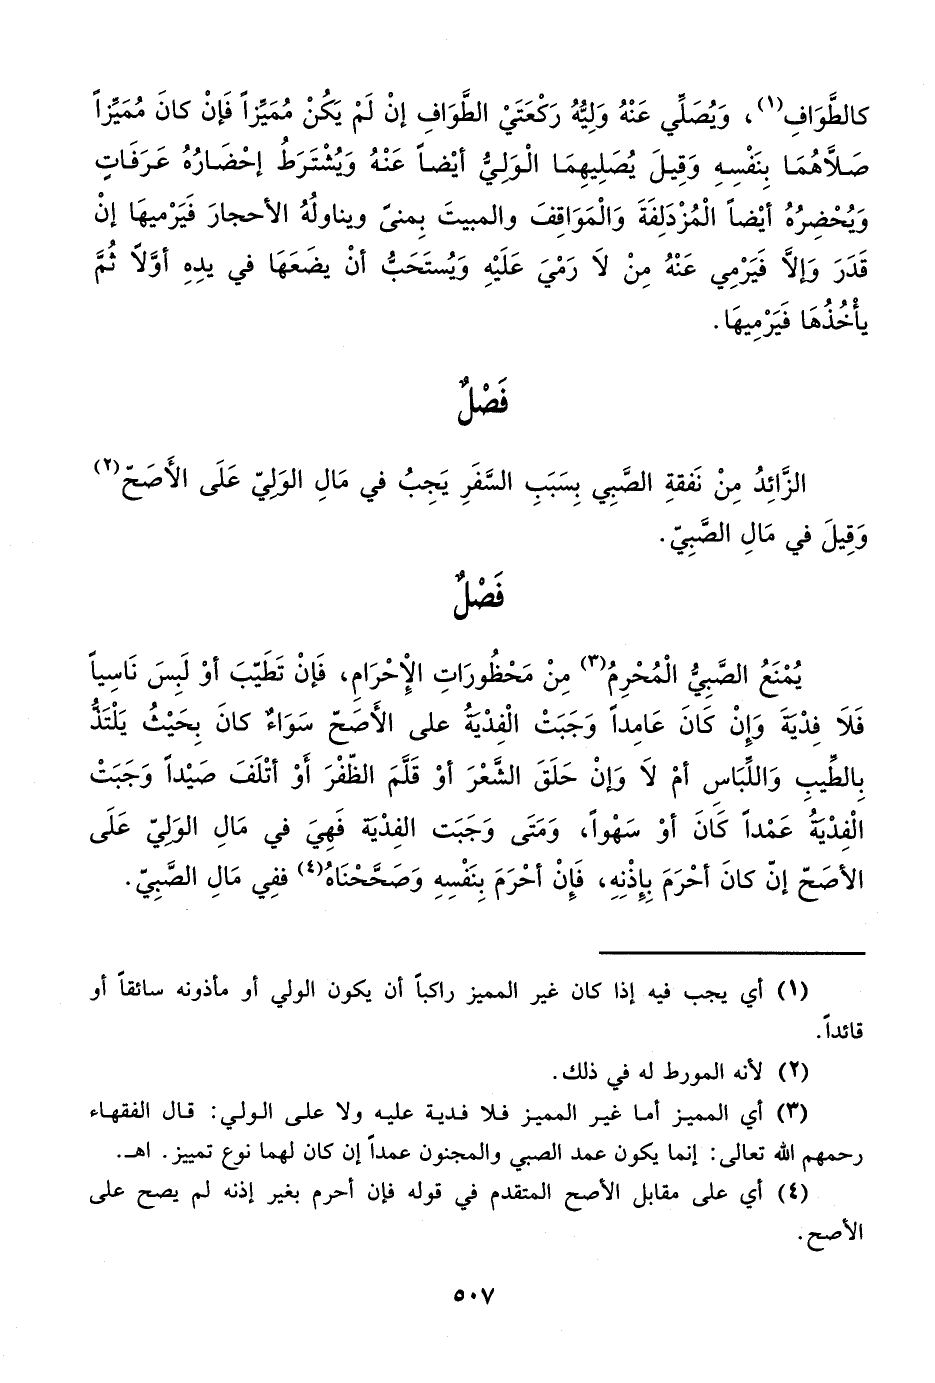 كالطَّوَافِ(١)، وَيُصَلِّي عَنْهُ وَلِيُّهُ رَكْعَتَيْ الطَّوَافِ إنْ لَمْ يَكُنْ مُمَيِّزاً فَإنْ كانَ مُمَيِّزاً
صَلاَّهُمَا بِنَفْسِهِ وَقِيلَ يُصَلِيهِمَا الْوَلِيُّ أيْضاً عَنْهُ وَيُشْتَرَطُ إحْضَارُهُ عَرَفَاتٍ
وَيُحْضِرُهُ أيْضاً الْمُزْدَلِفَةَ وَالْمَوَاقِفَ والمبيتَ بِمنىً ويناولُهُ الأحجارَ فَيَرْمِيهَا إنْ
قَدَرَ وَإلاَّ فَيَرْمِي عَنْهُ مِنْ لاَ رَمْيَ عَلَيْهِ وَيُستَحَبُّ أنْ يضَعَهَا في يدِهِ أوَّلاً ثُمَّ
يأْخُذُهَا فَيَرْمِيهَا.
فَصْلٌ
الزَّائِدُ مِنْ نَفَقةِ الصَّبِي بِسَبَبِ السَّفَرِ يَجِبُ في مَالِ الوَلِيّ عَلَى الأَصَحّ(٢)
وَقِيلَ في مَالِ الصَّبِيّ.
فَصْلٌ
يُمْنَعُ الصَّبِيُّ الْمُحْرِمُ(٣) مِنْ مَحْظُورَاتِ الإْحْرَامِ، فَإنْ تَطَيّبَ أوْ لَبِسَ نَاسِياً
فَلَا فِدْيَةَ وَإنْ كَانَ عَامِداً وَجَبَتْ الْفِدْيَةُ على الأَصَحّ سَوَاءٌ كانَ بِحَيْثُ يَلْتَذُّ
بِالطِّيبِ وَاللِّبَاسِ أمْ لاَ وَإنْ حَلَقَ الشَّعْرَ أوْ قَلَّمَ الظّفْرَ أَوْ أتْلَفَ صَيْداً وَجَبَتْ
الْفِدْيَةُ عَمْداً كَانَ أوْ سَهْواً، وَمَتَى وَجَبَت الفِدْيَة فَهِيَ في مَالِ الوَلِيّ عَلَى
الأصَحّ إنّ كانَ أحْرَمَ بِإذْنِهِ، فَإنْ أحْرَمَ بِنَفْسِهِ وَصَحَّحْنَاهُ(٤) ففِي مَالِ الصَّبِيّ.
(١) أي يجب فيه إذا كان غير المميز راكباً أن يكون الولي أو مأذونه سائقاً أو
قائداً.
(٢) لأنه المورط له في ذلك.
(٣) أي المميز أما غير المميز فلا فدية عليه ولا على الولي: قال الفقهاء
رحمهم الله تعالى: إنما يكون عمد الصبي والمجنون عمداً إن كان لهما نوع تمييز. اهـ.
(٤) أي على مقابل الأصح المتقدم في قوله فإن أحرم بغير إذنه لم يصح على
الأصح.
٥٠٧